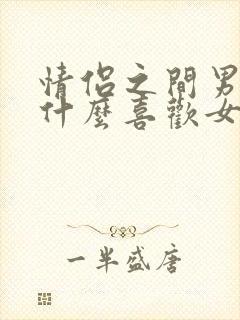 情侣之間男
什麼喜歡女
一半盛唐